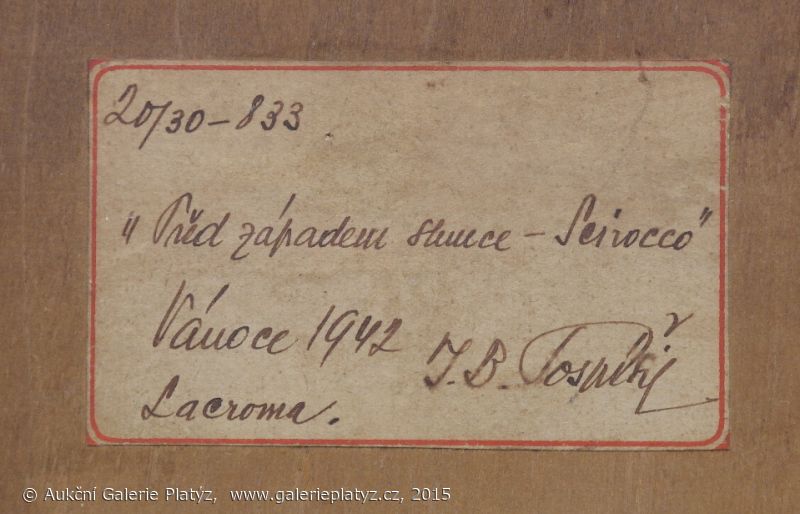 20/30-833
„Před západem slunce – Scirocco"
Vánoce 1942
J.B. Pospíšil
Lacroma.
© Aukční Galerie Platýz, www.galerieplatyz.cz, 2015